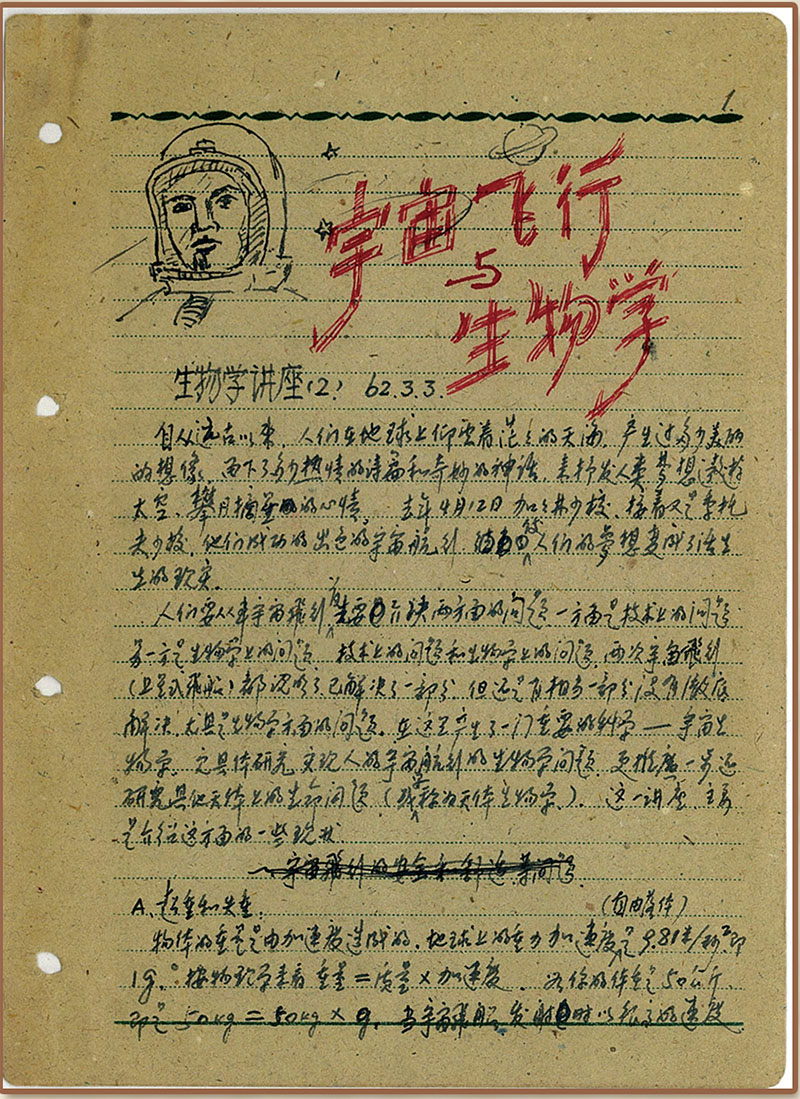 1.
宇宙飞行
与
生物学
生物学讲座(2) 62.3.3.
自从远古以来，人们在地球上仰望着茫茫的天海，产生过多少美丽
的想像，而下了多少热情的诗篇和奇妙的神话，来抒发人类梦想遨游
太空、攀月摘星的心情。去年4月12日加加林少校，接着又是季托
夫少校，他们成功的出色的宇宙航行 使人们的夢想变成了活生
生的现实。
人们要从事宇宙飛行，首先要解决两方面的问题，一方面是技术上的问题
另一方是生物学上的问题。技术上的问题和生物学上的问题，两次宇宙飛行
(卫星式飛船)都说明了已解决了一部分，但还是有相当一部分没有徹底
解决，尤其是生物学方面的问题。在这里产生了一门重要的科学——宇宙生
物学，它具体研究实现人的宇宙航行的生物学问题，更推广一步还
研究其他天体上的生命问题(或称为天体生物学)。这一讲座主要
是介绍这方面的一些现状
一、宇宙飛行的安全和舒适等问题
A. 超重和失重. (自由落体)
物体的重量是由加速度造成的，地球上的重力加速度是9.81米/秒²即
1g。按物理学来看 重量=质量×加速度。 你的体重是50公斤
即是 50kg = 50kg × g。当宇宙飛船发射时以很高的速度